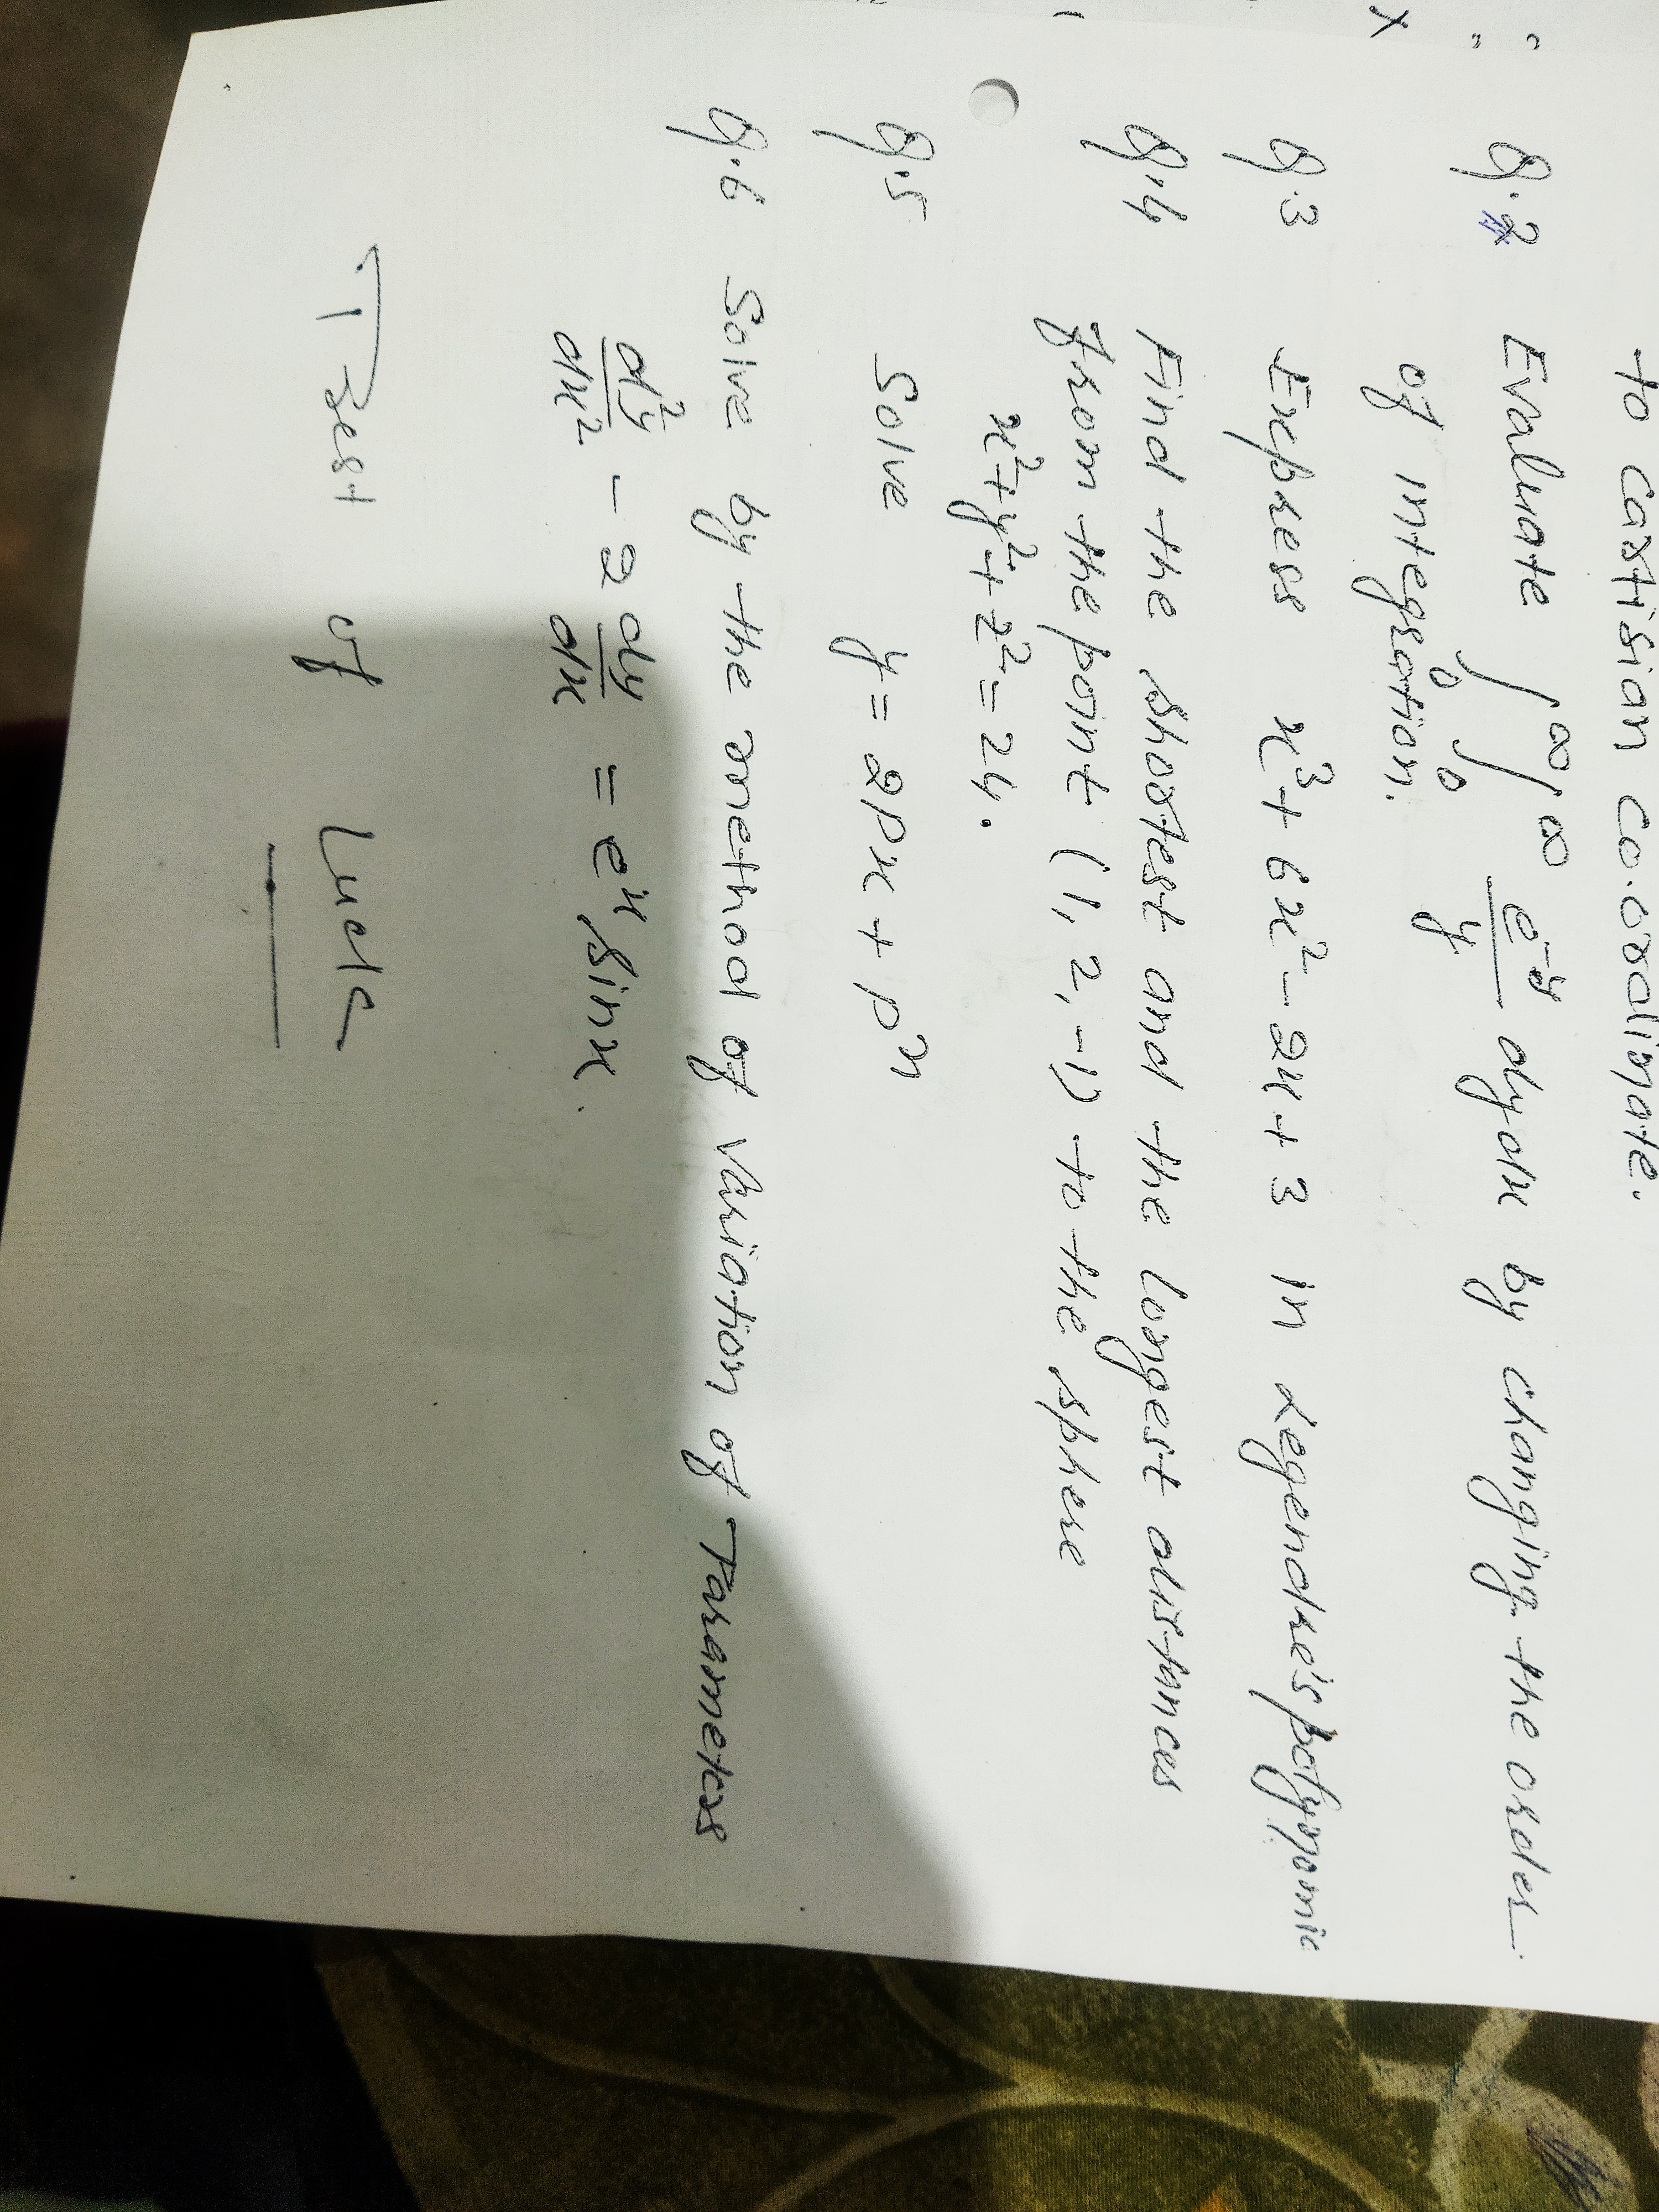 to cartisian co.ordinate.
Q.2 Evaluate ∫₀^∞ ∫₀^∞ e^-y/y dy dx by changing the order
of integration.
Q.3 Express x³ + 6x² - 2x + 3 in Legendre's polynomic
Q.4 Find the shortest and the longest distances
from the point (1, 2, -1) to the sphere
x² + y² + z² = 24.
Q.5 Solve y = 2px + pⁿ
Q.6 Solve by the method of variation of Parameters
d²y/dx² - 2 dy/dx = eˣ sinx.
Best of Luck